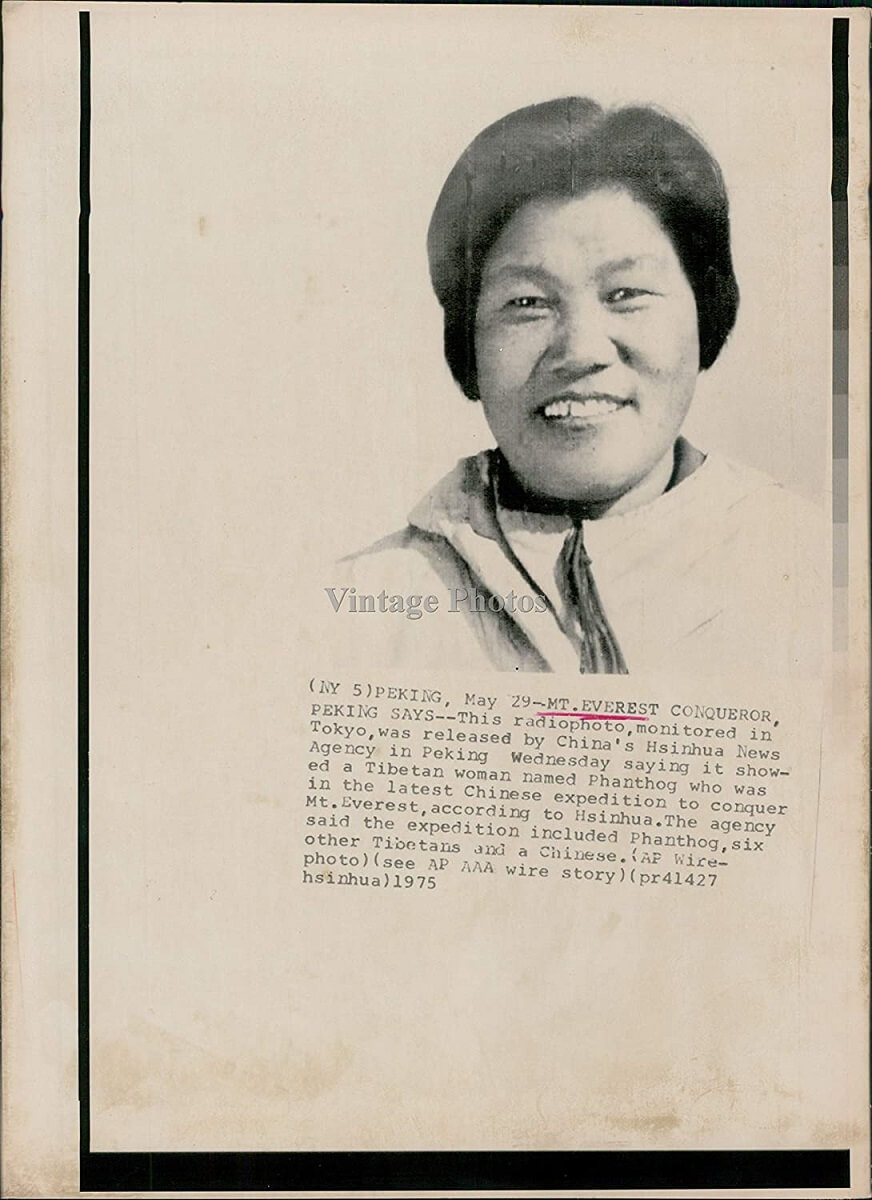 Vintage Photos
(NY 5)PEKING, May 29--MT.EVEREST CONQUEROR,
PEKING SAYS--This radiophoto,monitored in
Tokyo,was released by China's Hsinhua News
Agency in Peking Wednesday saying it show-
ed a Tibetan woman named Phanthog who was
in the latest Chinese expedition to conquer
Mt.Everest,according to Hsinhua.The agency
said the expedition included Phanthog,six
other Tibetans and a Chinese.(AP Wire-
photo)(see AP AAA wire story)(pr41427
hsinhua)1975